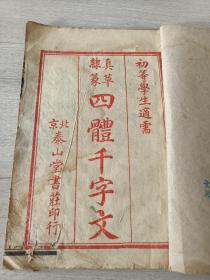 初等學生適需
真草
隸篆
四體千字文
北京
泰山堂書莊印行